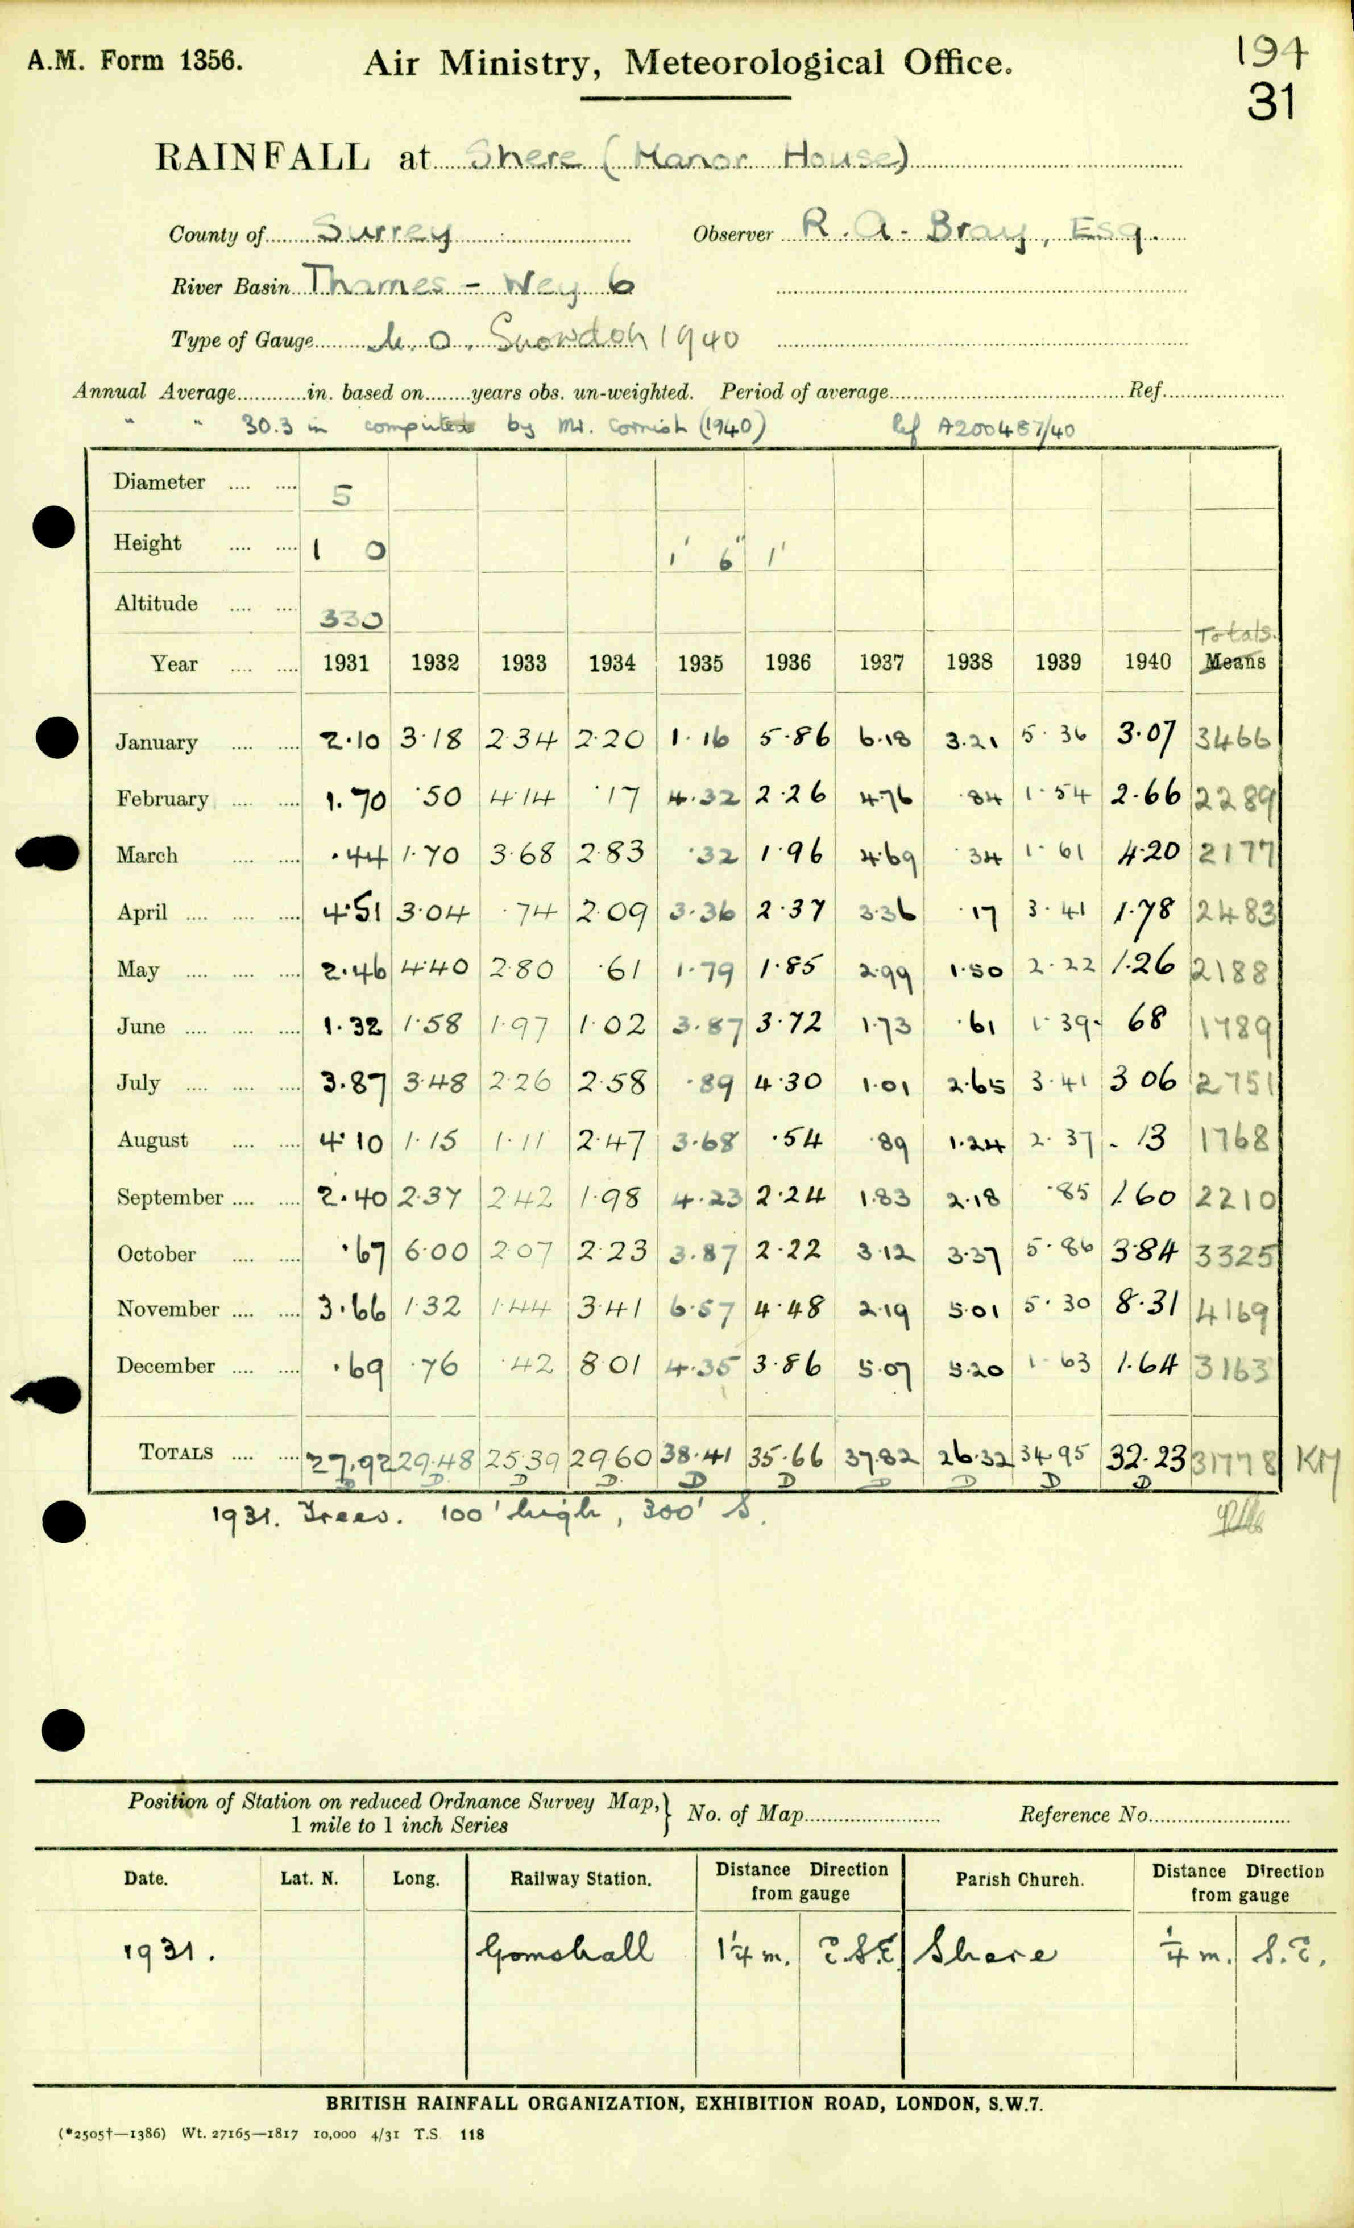 A.M. Form 1356.
Air Ministry, Meteorological Office.
194
31
RAINFALL at Shere (Manor House)
County of Surrey Observer R. A. Bray, Esq.
River Basin Thames - Wey 6
Type of Gauge M.O. Snowdon 1940
Annual Average in. based on years obs. un-weighted. Period of average Ref.
" " 30.3 in computed by Mr. Cornish (1940) Ref A200487/40
Diameter 5
Height 1 0 1' 6" 1'
Altitude 330
Totals.
Year 1931 1932 1933 1934 1935 1936 1937 1938 1939 1940 Means
January 2.10 3.18 2.34 2.20 1.16 5.86 6.18 3.21 5.36 3.07 3466
February 1.70 .50 4.14 .17 4.32 2.26 4.76 .84 1.54 2.66 2289
March .44 1.70 3.68 2.83 .32 1.96 4.69 .34 1.61 4.20 2177
April 4.51 3.04 .74 2.09 3.36 2.37 3.36 .17 3.41 1.78 2483
May 2.46 4.40 2.80 .61 1.79 1.85 2.99 1.50 2.22 1.26 2188
June 1.32 1.58 1.97 1.02 3.87 3.72 1.73 .61 1.39 .68 1789
July 3.87 3.48 2.26 2.58 .89 4.30 1.01 2.65 3.41 3.06 2751
August 4.10 1.15 1.11 2.47 3.68 .54 .89 1.24 2.37 .13 1768
September 2.40 2.37 2.42 1.98 4.23 2.24 1.83 2.18 .85 1.60 2210
October .67 6.00 2.07 2.23 3.87 2.22 3.12 3.37 5.86 3.84 3325
November 3.66 1.32 1.44 3.41 6.57 4.48 2.19 5.01 5.30 8.31 4169
December .69 .76 .42 8.01 4.35 3.86 5.07 5.20 1.63 1.64 3163
TOTALS 27.92 29.48 25.39 29.60 38.41 35.66 37.82 26.32 34.95 32.23 31778 KM
D D D D D D D D D D
1931. Trees. 100' high, 300' S.
Position of Station on reduced Ordnance Survey Map, 1 mile to 1 inch Series } No. of Map Reference No.
Date. Lat. N. Long. Railway Station. Distance Direction from gauge Parish Church. Distance Direction from gauge
1931. Gomshall 1¼ m. E.S.E. Shere ¼ m. S.E.
BRITISH RAINFALL ORGANIZATION, EXHIBITION ROAD, LONDON, S.W.7.
(*2505†—1386) Wt. 27165—1817 10,000 4/31 T.S. 118